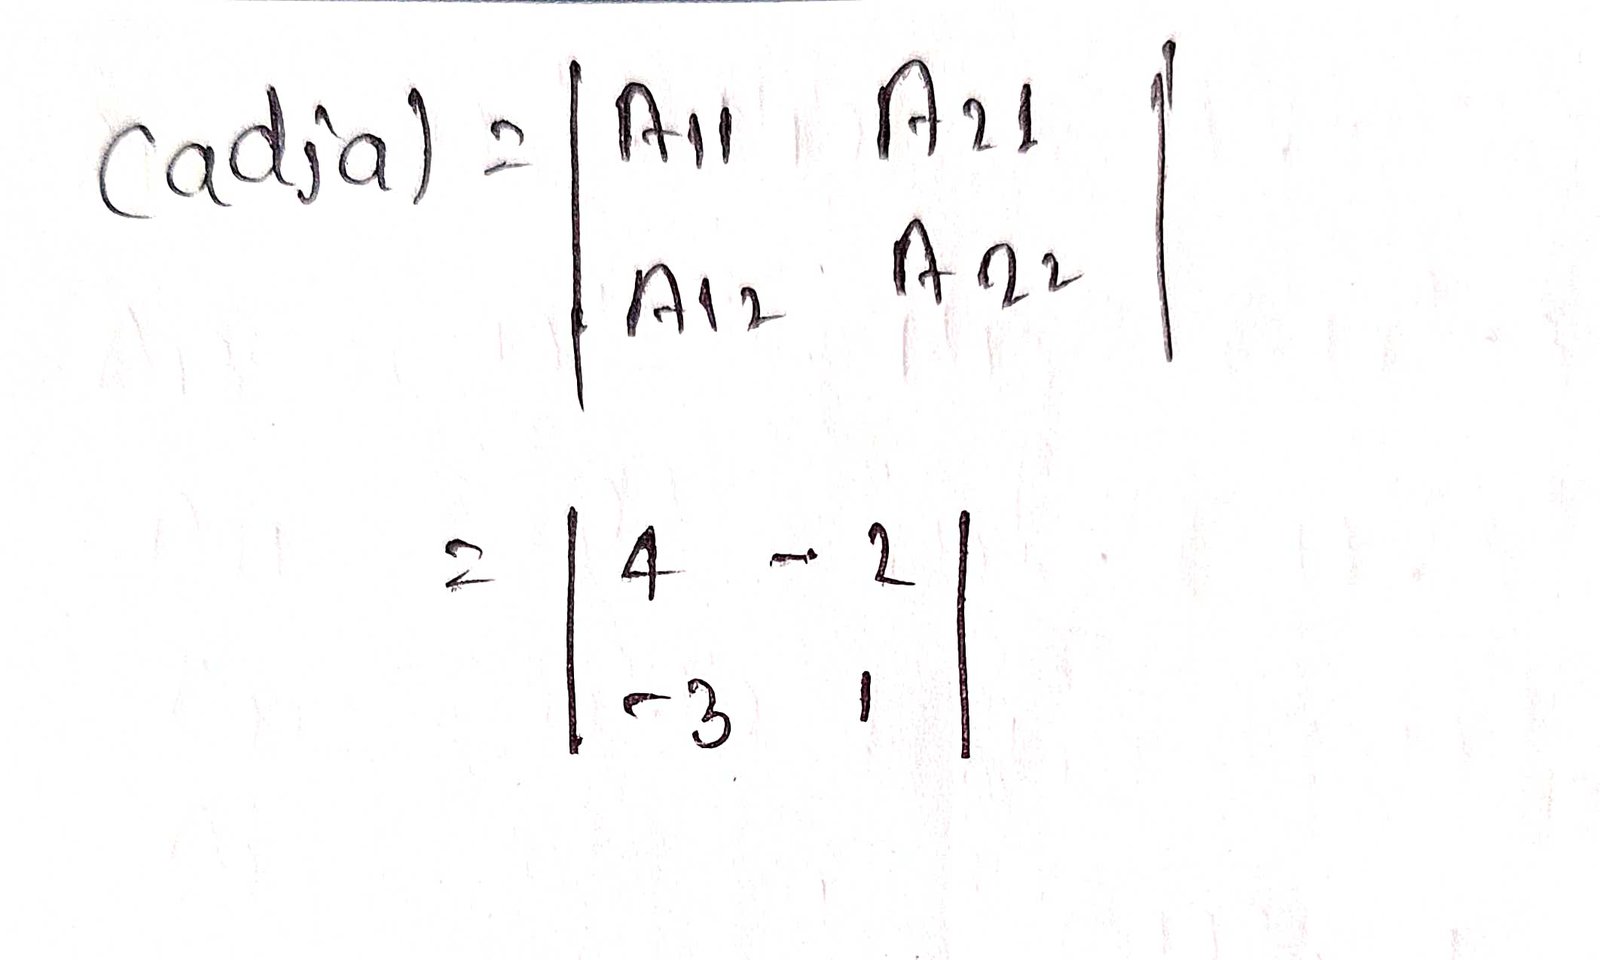 (adja) = | A11 A21 |
| A12 A22 |
= | 4 - 2 |
| -3 1 |